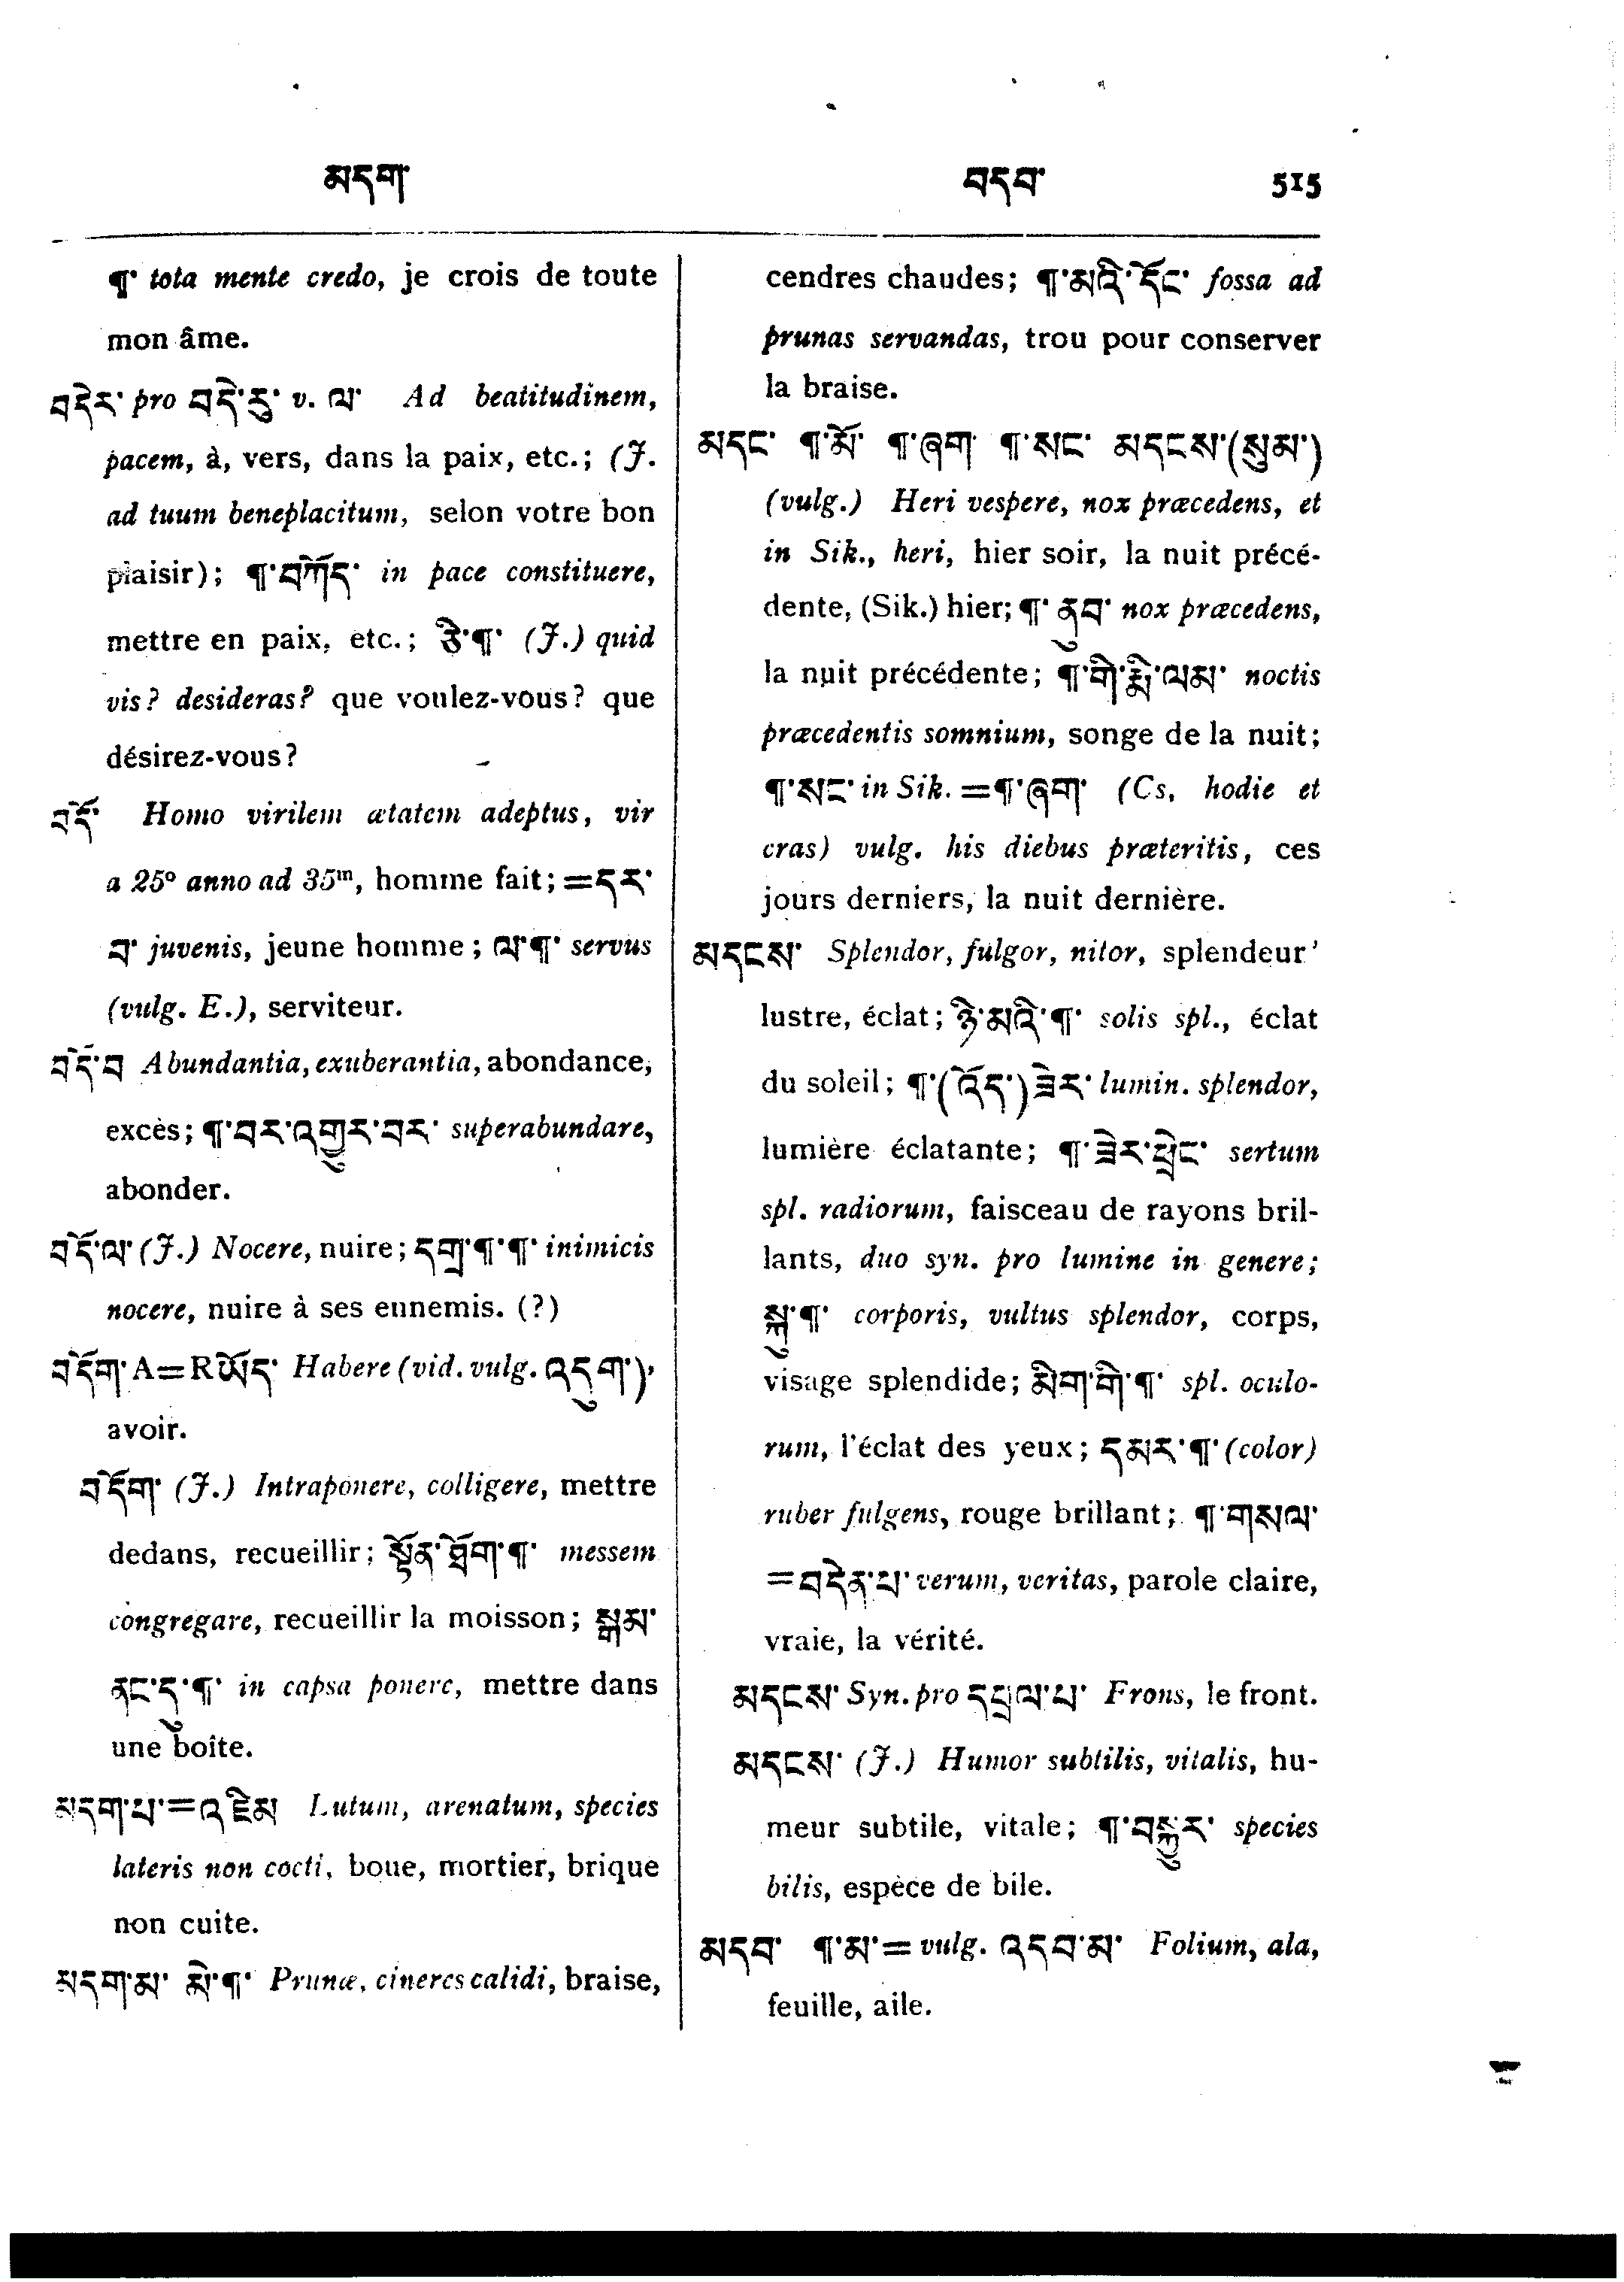 མདག་ བདབ་ 515
¶་ tota mente credo, je crois de toute
mon âme.
བདེར་ pro བདེ་རུ་ v. ལ་ Ad beatitudinem,
pacem, à, vers, dans la paix, etc.; (J.
ad tuum beneplacitum, selon votre bon
plaisir); ¶་བཀོད་ in pace constituere,
mettre en paix, etc.; ཅི་¶་ (J.) quid
vis? desideras? que voulez-vous? que
désirez-vous?
བདོ་ Homo virilem ætatem adeptus, vir
a 25º anno ad 35ᵐ, homme fait; =དར་
བ་ juvenis, jeune homme; ལ་¶་ servus
(vulg. E.), serviteur.
བདོ་བ Abundantia, exuberantia, abondance,
excès; ¶་བར་འགྱུར་བར་ superabundare,
abonder.
བདོ་ལ་ (J.) Nocere, nuire; དགྲ་¶་¶་ inimicis
nocere, nuire à ses ennemis. (?)
བདོག་ A=R ཡོད་ Habere (vid. vulg. འདུག་),
avoir.
བདོག་ (J.) Intraponere, colligere, mettre
dedans, recueillir; སྟོན་ཐོག་¶་ messem
congregare, recueillir la moisson; སྒམ་
ནང་དུ་¶་ in capsa ponere, mettre dans
une boîte.
མདག་པ་=འཇིམ Lutum, arenatum, species
lateris non cocti, boue, mortier, brique
non cuite.
མདག་མ་ མེ་¶་ Prunæ, cineres calidi, braise,
cendres chaudes; ¶་མའི་དོང་ fossa ad
prunas servandas, trou pour conserver
la braise.
མདང་ ¶་མོ་ ¶་ཞག་ ¶་སང་ མདངས་(སུམ་)
(vulg.) Heri vespere, nox præcedens, et
in Sik., heri, hier soir, la nuit précé-
dente, (Sik.) hier; ¶་ ནུབ་ nox præcedens,
la nuit précédente; ¶་གི་རྨི་ལམ་ noctis
præcedentis somnium, songe de la nuit;
¶་སང་ in Sik. =¶་ཞག་ (Cs. hodie et
cras) vulg. his diebus præteritis, ces
jours derniers, la nuit dernière.
མདངས་ Splendor, fulgor, nitor, splendeur'
lustre, éclat; ཉི་མའི་¶་ solis spl., éclat
du soleil; ¶་(འོད་)ཟེར་ lumin. splendor,
lumière éclatante; ¶་ཟེར་ཕྲེང་ sertum
spl. radiorum, faisceau de rayons bril-
lants, duo syn. pro lumine in genere;
སྐུ་¶་ corporis, vultus splendor, corps,
visage splendide; མིག་གི་¶་ spl. oculo-
rum, l'éclat des yeux; དམར་¶་ (color)
ruber fulgens, rouge brillant; ¶་གསལ་
=བདེན་པ་ verum, veritas, parole claire,
vraie, la vérité.
མདངས་ Syn. pro དཔྲལ་པ་ Frons, le front.
མདངས་ (J.) Humor subtilis, vitalis, hu-
meur subtile, vitale; ¶་བསྐུར་ species
bilis, espèce de bile.
མདབ་ ¶་མ་= vulg. འདབ་མ་ Folium, ala,
feuille, aile.